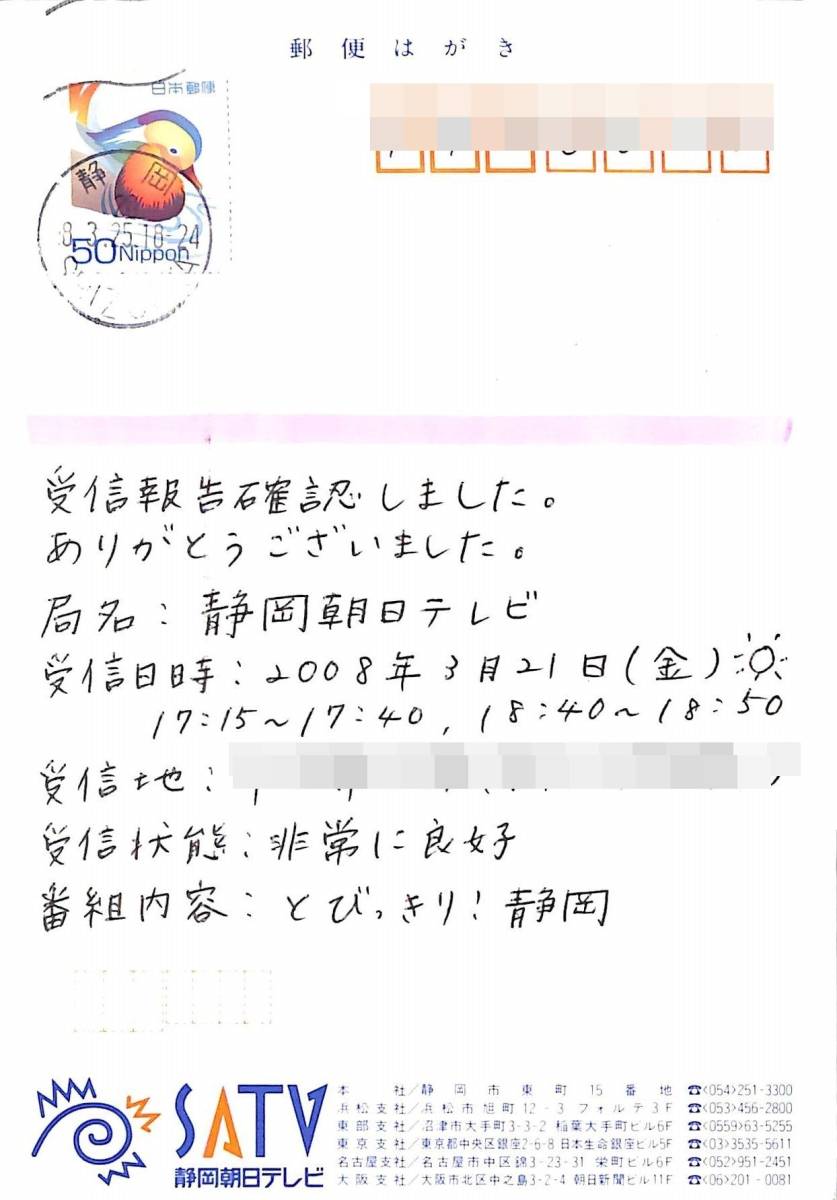 郵便はがき
日本郵便
静岡
8.3.25.18-24
50 Nippon
受信報告確認しました。
ありがとうございました。
局名：静岡朝日テレビ
受信日時：2008年3月21日(金)
17:15～17:40, 18:40～18:50
受信地：
受信状態：非常に良好
番組内容：とびっきり！静岡
SATV
静岡朝日テレビ
本社／静岡市東町15番地 ☎<054>251-3300
浜松支社／浜松市旭町12-3 フォルテ3F ☎<053>456-2800
東部支社／沼津市大手町3-3-2 稲葉大手町ビル6F ☎<0559>63-5255
東京支社／東京都中央区銀座2-6-8 日本生命銀座ビル5F ☎<03>3535-5611
名古屋支社／名古屋市中区錦3-23-31 栄町ビル6F ☎<052>951-2451
大阪支社／大阪市北区中之島3-2-4 朝日新聞ビル11F ☎<06>201-0081